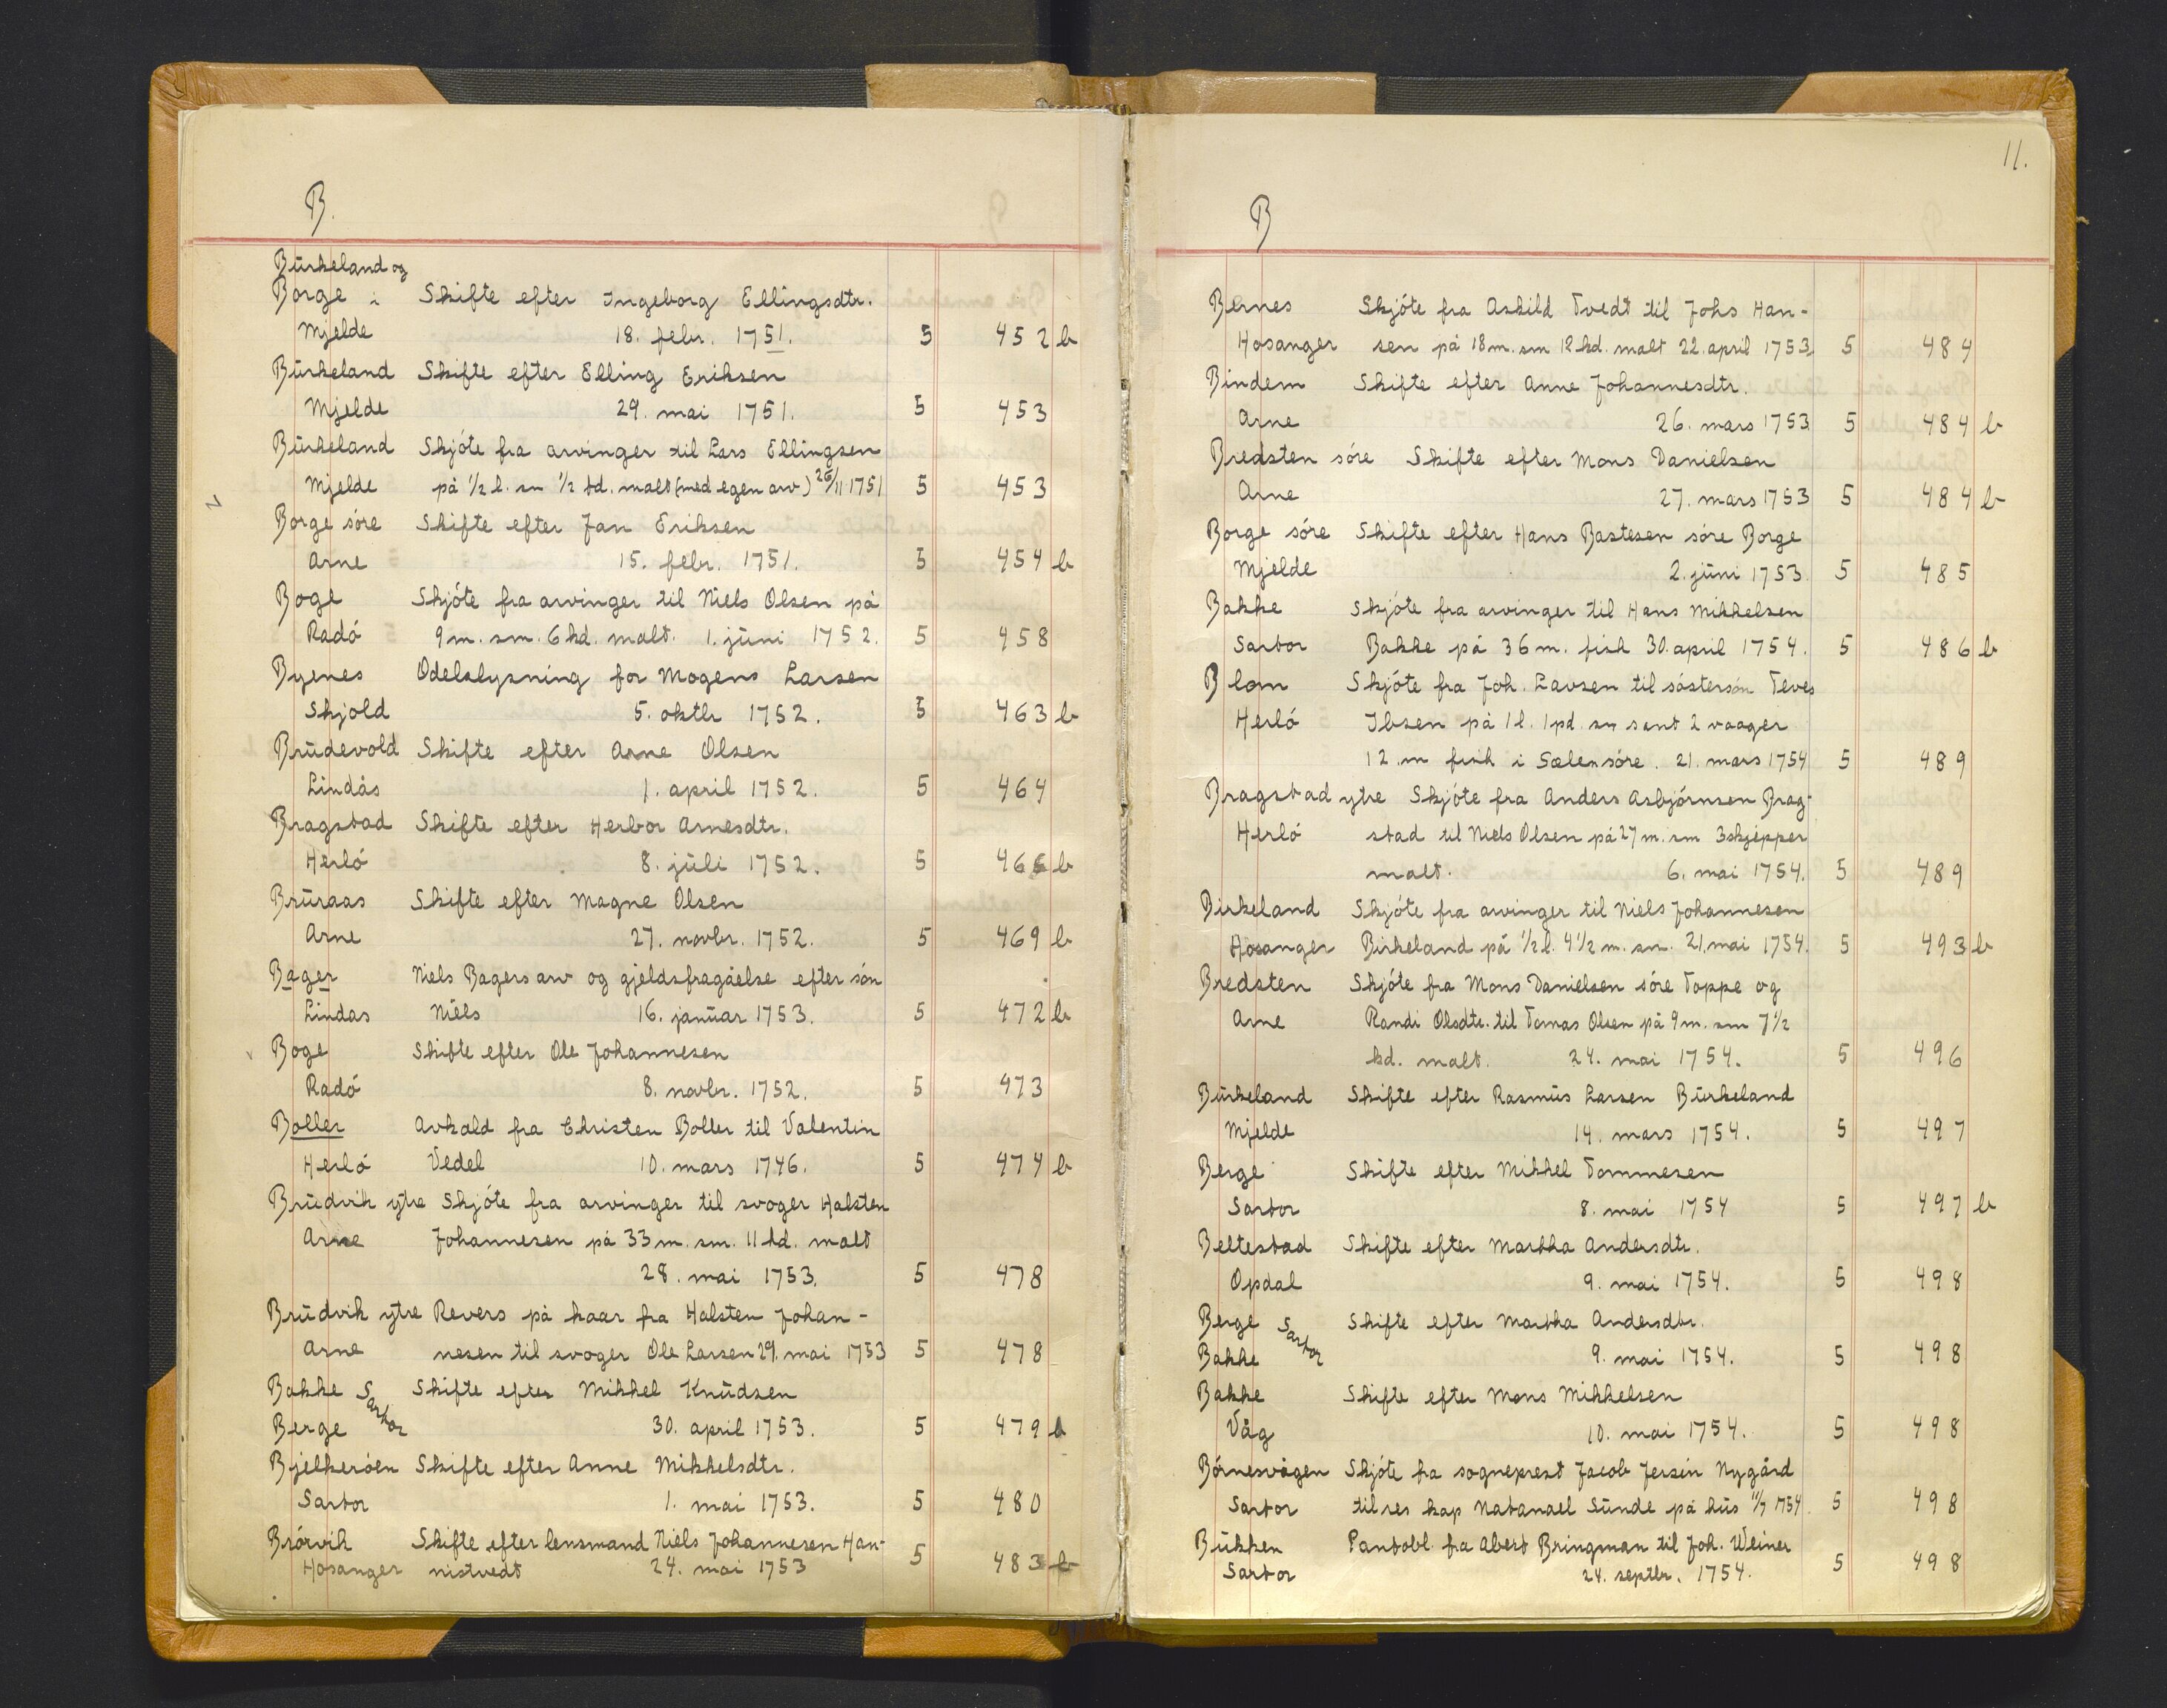 B.
Burkeland og
Borge i Skifte efter Ingeborg Ellingsdtr.
Mjelde 18. febr. 1751. 5 452 b
Burkeland Skifte efter Elling Eriksen
Mjelde 29. mai 1751. 5 453
Burkeland Skjóte fra arvinger til Lars Ellingsen
Mjelde på 1/2 l. sm 1/2 td. malt (med egen arv) 26/11 1751 5 453
Borge sóre Skifte efter Jan Eriksen
Arne 15. febr. 1751. 5 454 b
Boge Skjóte fra arvinger til Niels Olsen på
Radó 9 m. sm. 6 kd. malt. 1. juni 1752. 5 458
Byenes Odelslysning for Mogens Larsen
Skjold 5. oktbr 1752. 5 463 b
Brudevold Skifte efter Arne Olsen
Lindås 1. april 1752. 5 464
Bragstad Skifte efter Herbor Arnesdtr.
Herló 8. juli 1752. 5 466 b
Bruraas Skifte efter Magne Olsen
Arne 27. novbr. 1752. 5 469 b
Bager Niels Bagers arv og gjeldsfragåelse efter són
Lindas Niels 16. januar 1753. 5 472 b
Boge Skifte efter Ole Johannesen
Radó 8. novbr. 1752. 5 473
Boller Avkald fra Christen Boller til Valentin
Herló Vedel 10. mars 1746. 5 474 b
Brudvik ytre Skjóte fra arvinger til svoger Halsten
Arne Johannesen på 33 m. sm. 11 kd. malt
28. mai 1753. 5 478
Brudvik ytre Revers på kaar fra Halsten Johan-
Arne nesen til svoger Ole Larsen 29. mai 1753 5 478
Bakke Sartor Skifte efter Mikkel Knudsen
Berge 30. april 1753. 5 479 b
Bjelkeróen Skifte efter Anne Mikkelsdtr.
Sartor 1. mai 1753. 5 480
Brórvik Skifte efter lensmand Niels Johannesen Han-
Hosanger nistvedt 24. mai 1753 5 483 b
11.
B
Bernes Skjóte fra Askild Tvedt til Johs Han-
Hosanger sen på 18 m. sm 12 kd. malt 22. april 1753 5 484
Bindem Skifte efter Anne Johannesdtr.
Arne 26. mars 1753 5 484 b
Bredsten sóre Skifte efter Mons Danielsen
Arne 27. mars 1753 5 484 b
Borge sóre Skifte efter Hans Bastesen sóre Borge
Mjelde 2. juni 1753. 5 485
Bakke Skjóte fra arvinger til Hans Mikkelsen
Sartor Bakke på 36 m. fisk 30. april 1754. 5 486 b
Blom Skjóte fra Joh. Lavsen til sósterson Teves
Herló Ibsen på 1 l. 1 pd. sm samt 2 vaager
12. m fisk i Sælen sóre. 21. mars 1754 5 489
Bragstad ytre Skjóte fra Anders Asbjórnsen Brag-
Herló stad til Niels Olsen på 27 m. sm 3 skjepper
malt. 6. mai 1754. 5 489
Birkeland Skjóte fra arvinger til Niels Johannesen
Hosanger Birkeland på 1/2 l. 4 1/2 m. sm. 21. mai 1754. 5 493 b
Bredsten Skjóte fra Mons Danielsen sóre Toppe og
Arne Randi Olsdtr. til Tomas Olsen på 9 m. sm 7 1/2
kd. malt. 24. mai 1754. 5 496
Burkeland Skifte efter Rasmus Larsen Burkeland
Mjelde 14. mars 1754. 5 497
Berge Skifte efter Mikkel Tommesen
Sartor 8. mai 1754 5 497 b
Beltestad Skifte efter Martha Andersdtr.
Opdal 9. mai 1754. 5 498
Berge Sartor Skifte efter Martha Andersdtr.
Bakke 9. mai 1754. 5 498
Bakke Skifte efter Mons Mikkelsen
Våg 10. mai 1754. 5 498
Bórnesvågen Skjóte fra sogneprest Jacob Jersin Nygård
Sartor til res kap Natanael Sunde på hus 11/7 1754. 5 498
Bukken Pantobl. fra Abert Bringman til Joh. Weiner
Sartor 24. septbr. 1754. 5 498